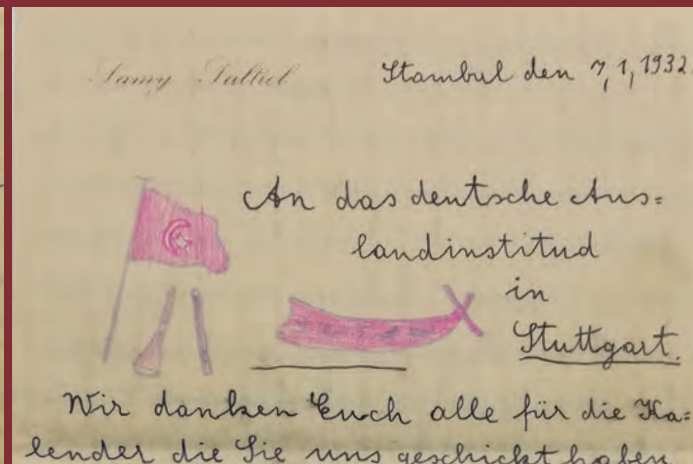 Samy
Stambul den 7,1,1932.
An das deutsche Aus=
landinstitud
in
Stuttgart.
Wir danken Euch alle für die Ka=
lender die Sie uns geschickt haben